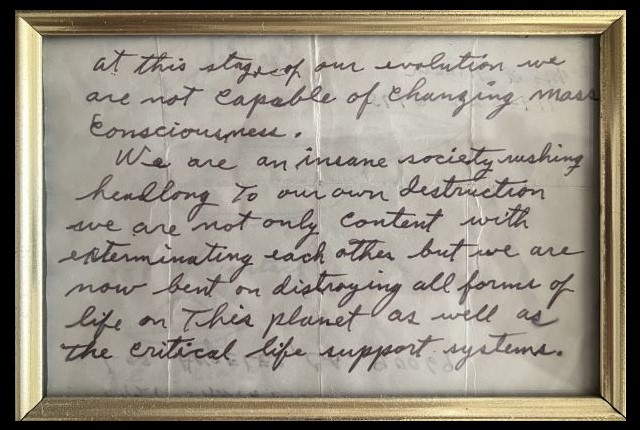 at this stage of our evolution we
are not capable of changing mass
consciousness.
We are an insane society rushing
headlong to our own destruction
we are not only content with
exterminating each other but we are
now bent on distroying all forms of
life on This planet as well as
the critical life support systems.